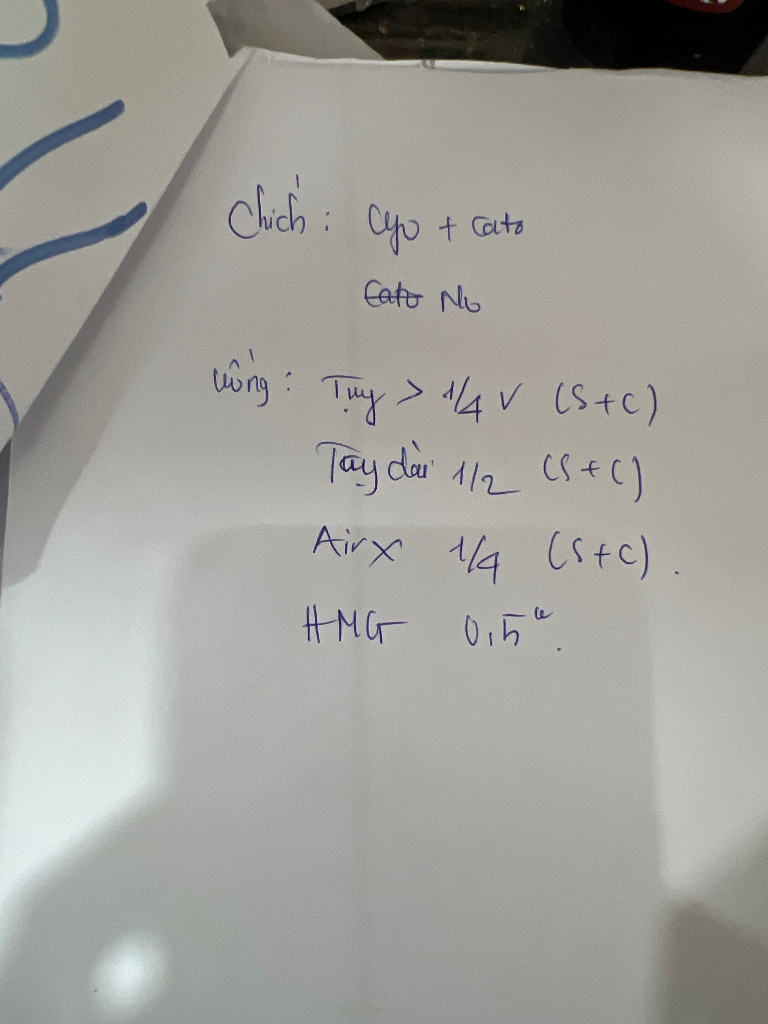 Chích : Cyo + Cato
Cato No
Uống : Tụy > 1/4 V (S+C)
Tây dài 1/2 (S+C)
Air X 1/4 (S+C).
HMG 0,5